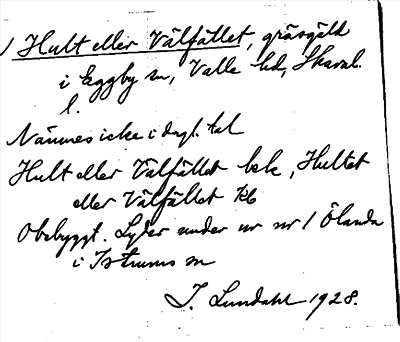 1 Hult eller Välfället, gräsgäld
i Eggby sn, Valle hd, Skarab.
l.
Nämnes icke i dagl. tal
Hult eller Välfället bsk, Hultet
eller Välfället kb
Obebyggt. Lyder under nr 1 Ölanda
i Istrums sn
I. Lundahl 1928.